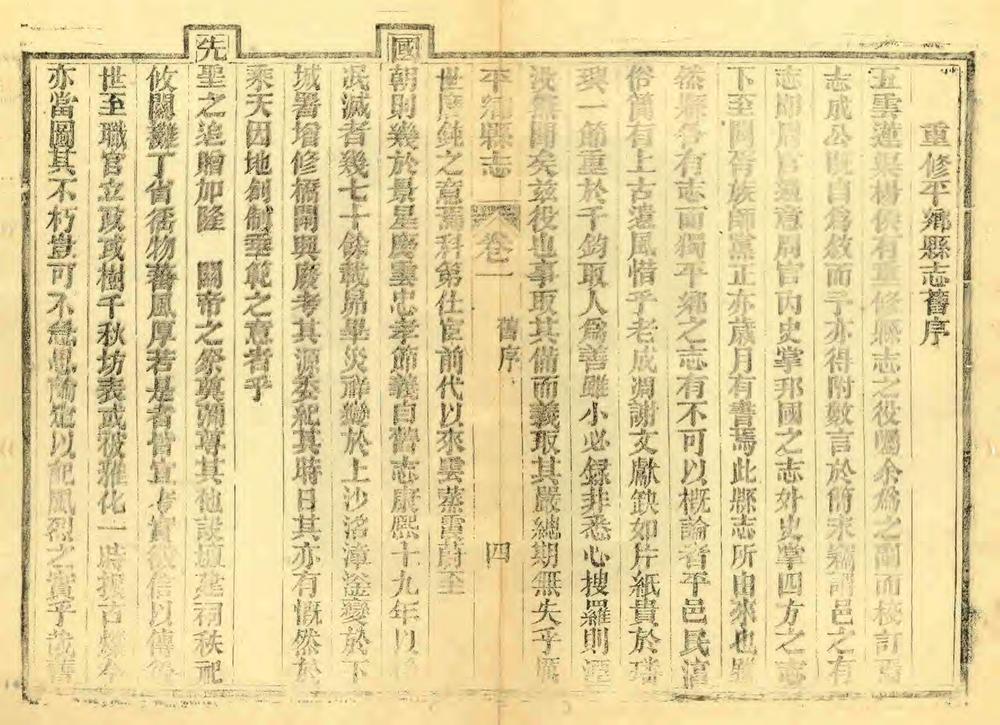 重修平鄉縣志舊序
五雲連吳楊侯有重修縣志之役囑余為之副而校訂焉
志成公既自為敘而予亦得附數言於簡末竊謂邑之有
志即周官遺意周官內史掌邦國之志外史掌四方之志
下至閭胥族師黨正亦歲月有書焉此縣志所由來也雖
然縣各有志而獨平鄉之志有不可以概論者平邑民淳
俗儉有上古遺風惜乎老成凋謝文獻缺如片紙貴於璠
璵一節重於千鈞取人為善雖小必錄非悉心搜羅則湮
沒無聞矣茲役也事取其備而義取其嚴總期無失乎厲
平鄉縣志 卷一 舊序 四
世磨鈍之意焉科第仕宦前代以來雲蒸霞蔚至
國朝則幾於景星慶雲忠孝節義自舊志康熙十九年以
泯滅者幾七十餘載昴畢災祥變於上沙洺漳滏變於下
城署增修橋閘興廢考其源委紀其時日其亦有慨然於
乘天因地創制垂範之意者乎
先聖之追贈加隆 關帝之祭奠彌專其他設壇建祠秩祀
攸關攤丁省徭物蕃風厚若是者皆宜考實徵信以傳後
世至職官立政或樹千秋坊表或被雅化一時援古爍今
亦當圖其不朽豈可不慎思論定以配風烈之實乎哉舊